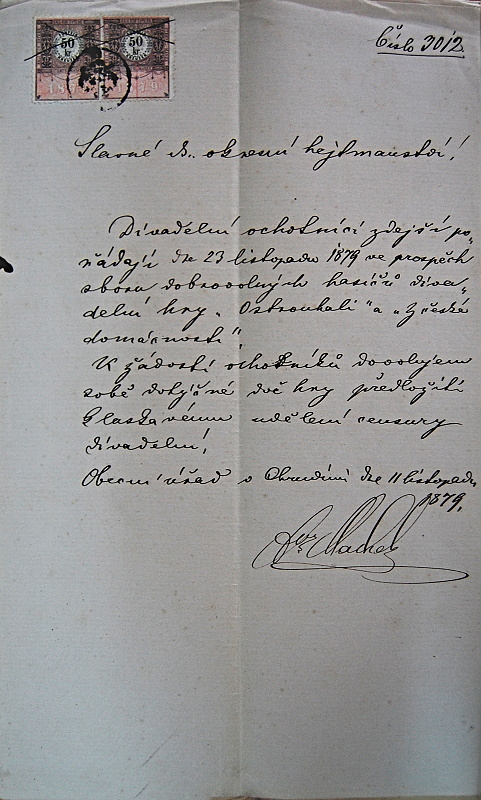 50 kr 50 kr
1879
Číslo 3012.
Slavné ck. okresní hejtmanství!
Divadelní ochotníci zdejší po-
řádají dne 23 listopadu 1879 ve prospěch
sboru dobrovolných hasičů diva-
delní hry „Ostrouhali“ a „Z české
domácnosti“.
K žádosti ochotníků dovolujem
sobě dotyčné dvě hry předložiti
ku laskavému udělení censury
divadelní!
Obecní úřad v Chrudimi dne 11 listopadu
1879.